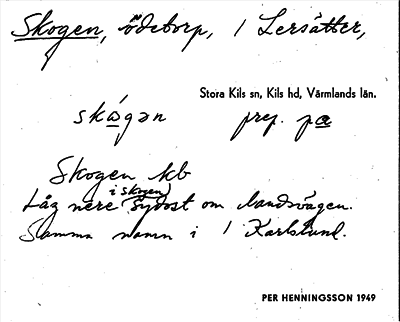 Skogen, ödetorp, 1 Lersätter,
Stora Kils sn, Kils hd, Värmlands län.
skógan prep. på
Skogen kb
i skogen
Låg nere sydost om landsvägen.
Samma namn i 1 Karlslund.
PER HENNINGSSON 1949